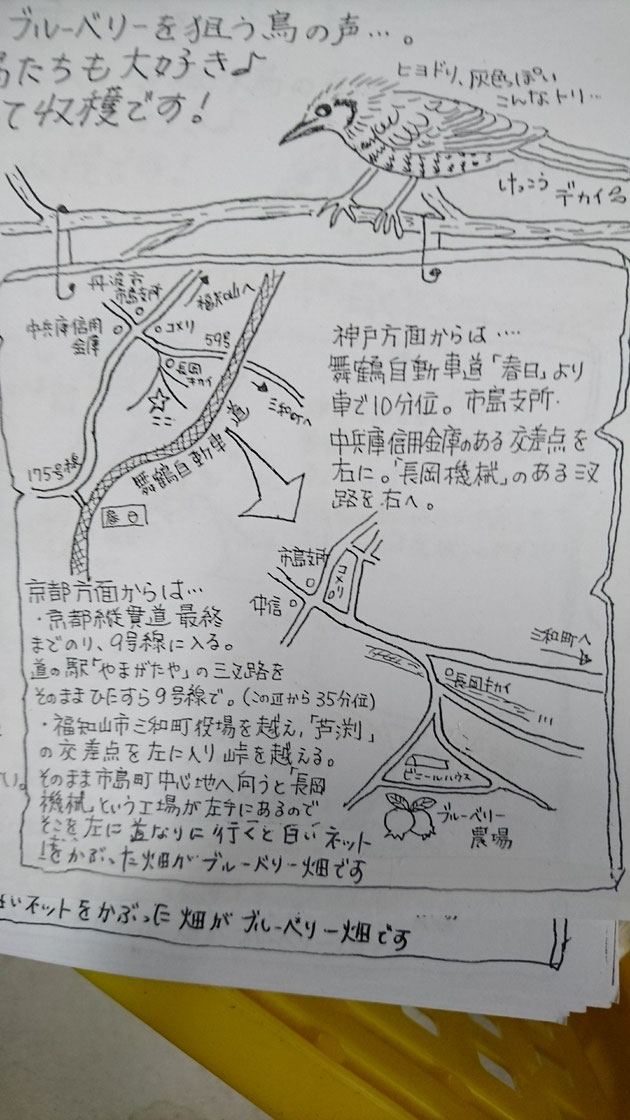 ブルーベリーを狙う鳥の声…。
たちも大好き♪
て収穫です!
ヒヨドリ、灰色っぽい
こんなトリ…
けっこう
デカイ
丹波市
市島支所
福知山へ
中兵庫信用
金庫
コメリ
59号
長岡
キカイ
ココ
三和町へ
175号線
舞鶴自動車道
春日
神戸方面からは‥‥
舞鶴自動車道「春日」より
車で10分位。市島支所・
中兵庫信用金庫のある交差点を
右に。「長岡機械」のある三叉
路を右へ。
市島支所
コメリ
中信
三和町へ
長岡キカイ
ビニールハウス
ブルーベリー
農場
京都方面からは…
・京都縦貫道最終
までのり、9号線に入る。
道の駅「やまがたや」の三叉路を
そのままひたすら9号線で。(この辺から35分位)
・福知山市三和町役場を越え、「芦渕」
の交差点を左に入り峠を越える。
そのまま市島町中心地へ向うと「長岡
機械」という工場が左手にあるので
そこを左に道なりに行くと白いネット
をかぶった畑がブルーベリー畑です
いネットをかぶった畑がブルーベリー畑です